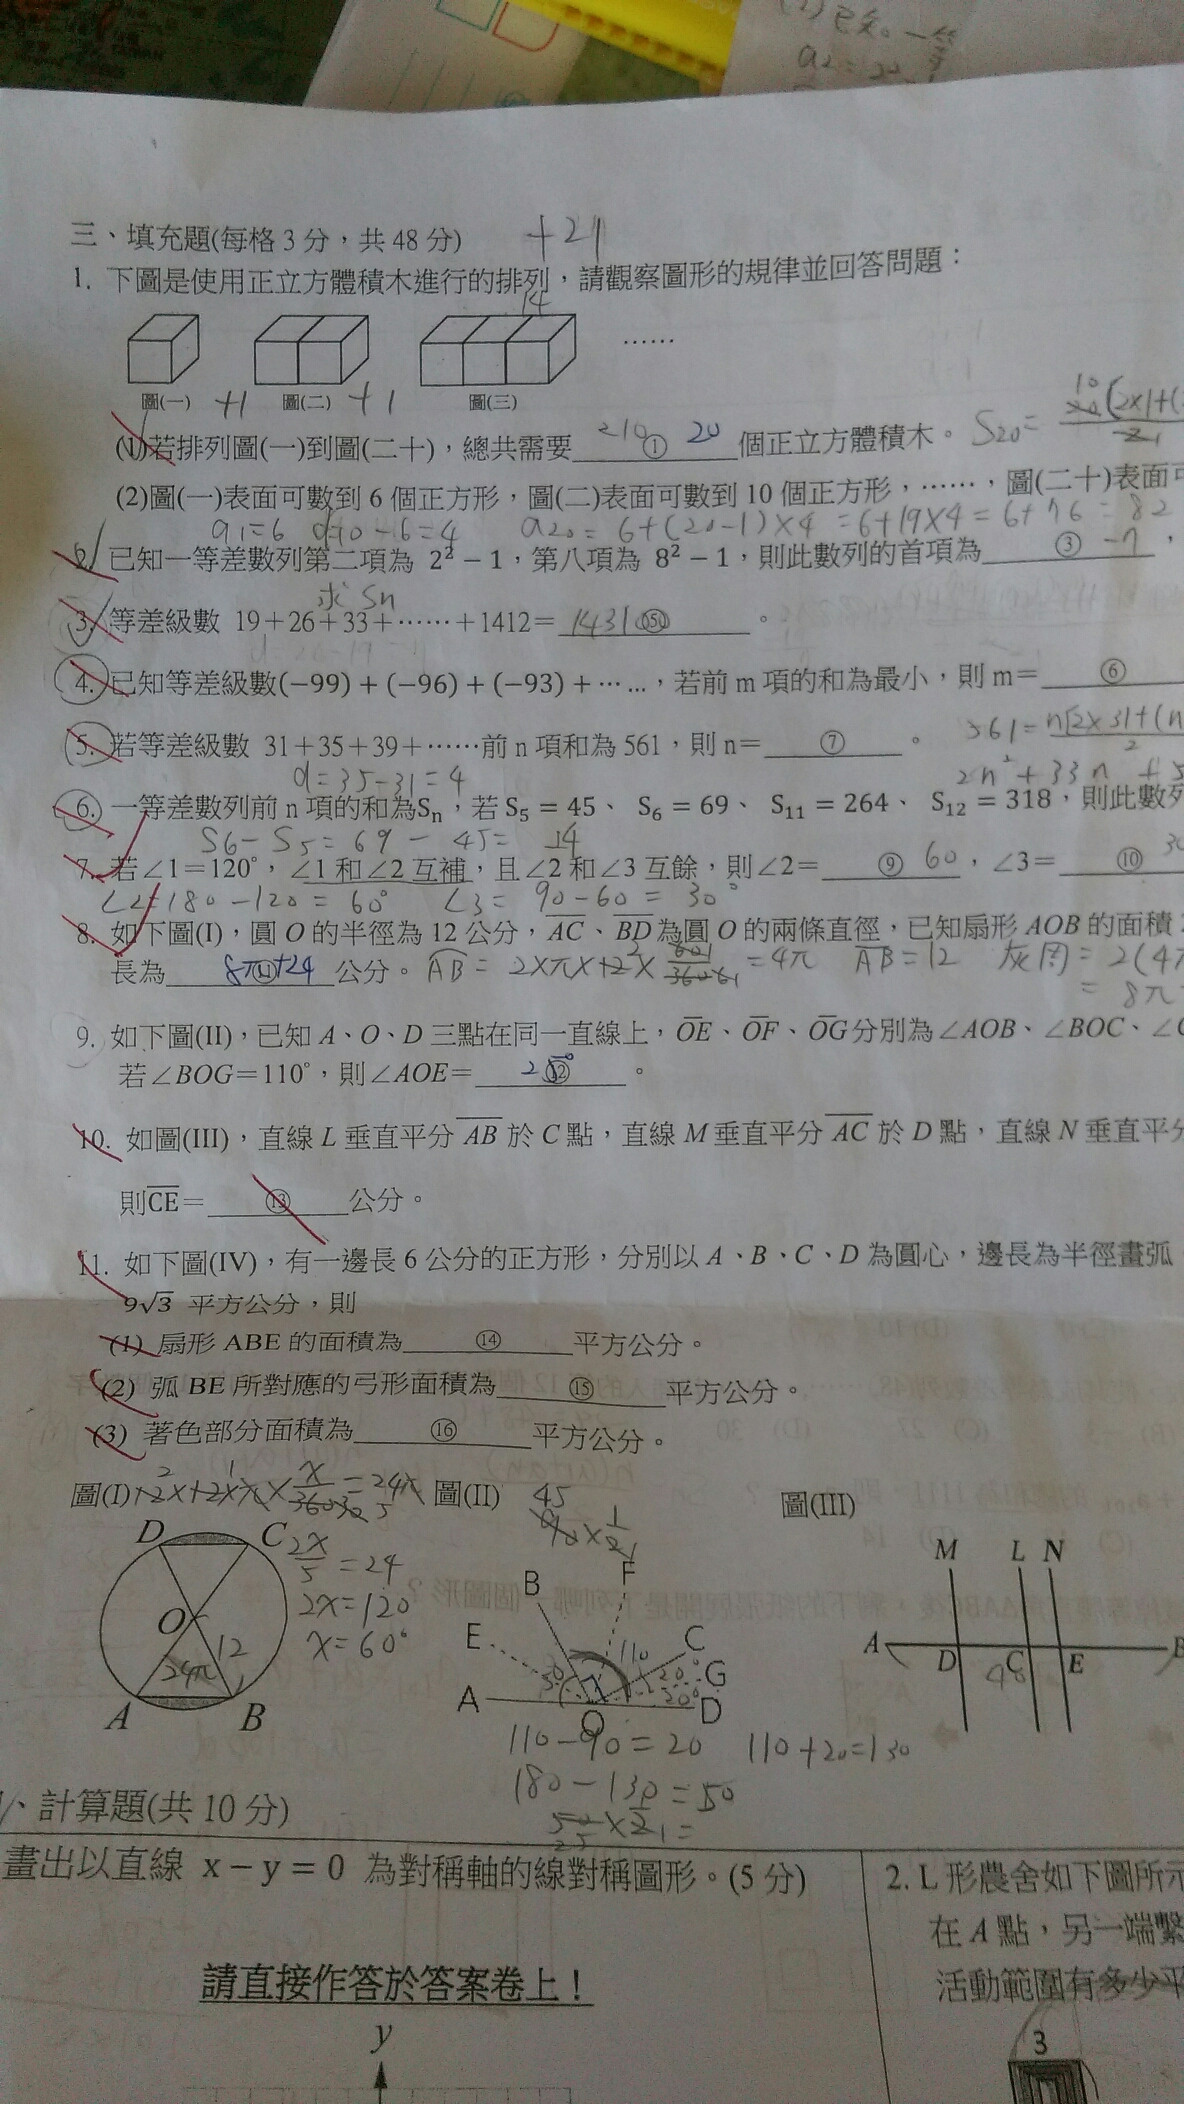 (2)已知一等
a2=22
三、填充題(每格3分，共48分) +21
1. 下圖是使用正立方體積木進行的排列，請觀察圖形的規律並回答問題：
14
……
圖(一) +1 圖(二) +1 圖(三)
(1)若排列圖(一)到圖(二十)，總共需要 210 ① 20 個正立方體積木。 S20=
(2)圖(一)表面可數到6個正方形，圖(二)表面可數到10個正方形，……，圖(二十)表面可
a1=6 d=10-6=4 a20=6+(20-1)×4=6+19×4=6+76=82
2. 已知一等差數列第二項為 2²−1，第八項為 8²−1，則此數列的首項為 ③ -7，
求 Sn
3. 等差級數 19+26+33+……+1412= 1431 ⑤ 。
4. 已知等差級數(−99)+(−96)+(−93)+⋯…，若前m項的和為最小，則m= ⑥
5. 若等差級數 31+35+39+……前n項和為561，則n= ⑦ 。 561=n[2×31+(n
2
d=35-31=4 2n²+33n
6. 一等差數列前n項的和為Sn，若 S5=45、S6=69、S11=264、S12=318，則此數列
S6-S5=69-45= 14
7. 若∠1=120°，∠1和∠2互補，且∠2和∠3互餘，則∠2= ⑨ 60，∠3= ⑩ 30
∠2=180-120=60° ∠3=90-60=30°
8. 如下圖(I)，圓O的半徑為12公分，AC、BD為圓O的兩條直徑，已知扇形AOB的面積
長為 8π+24 ⑪ 公分。 AB=2×π×12×60/360=4π AB=12 灰周=2(4π
=8π
9. 如下圖(II)，已知A、O、D三點在同一直線上，OE、OF、OG分別為∠AOB、∠BOC、∠C
若∠BOG=110°，則∠AOE= 25° ⑫ 。
10. 如圖(III)，直線L垂直平分AB於C點，直線M垂直平分AC於D點，直線N垂直平分
則CE= ⑬ 公分。
11. 如下圖(IV)，有一邊長6公分的正方形，分別以A、B、C、D為圓心，邊長為半徑畫弧
9√3 平方公分，則
(1) 扇形ABE的面積為 ⑭ 平方公分。
(2) 弧BE所對應的弓形面積為 ⑮ 平方公分。
(3) 著色部分面積為 ⑯ 平方公分。
圖(I) 12×12×π×x/360=24π 圖(II) 45 圖(III)
90×1/2
D C 2x/5=24
2x=120
x=60°
O 12
24π
A B
B F
E 110 C
20° G
20°
A O D
M L N
A D C E B
48
110-90=20 110+20=130
180-130=50
50×1/2=
25
、計算題(共10分)
畫出以直線 x−y=0 為對稱軸的線對稱圖形。(5分)
請直接作答於答案卷上！
y
2. L形農舍如下圖所示
在A點，另一端繫
活動範圍有多少平
3